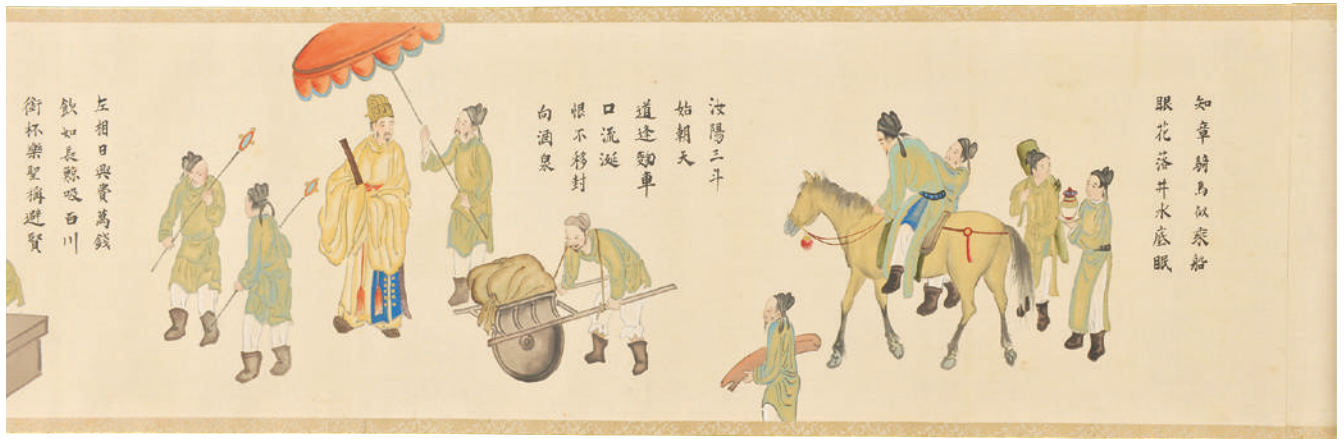 知章騎馬似乘船
眼花落井水底眠
汝陽三斗
始朝天
道逢麴車
口流涎
恨不移封
向酒泉
左相日興費萬錢
飲如長鯨吸百川
銜杯樂聖稱避賢